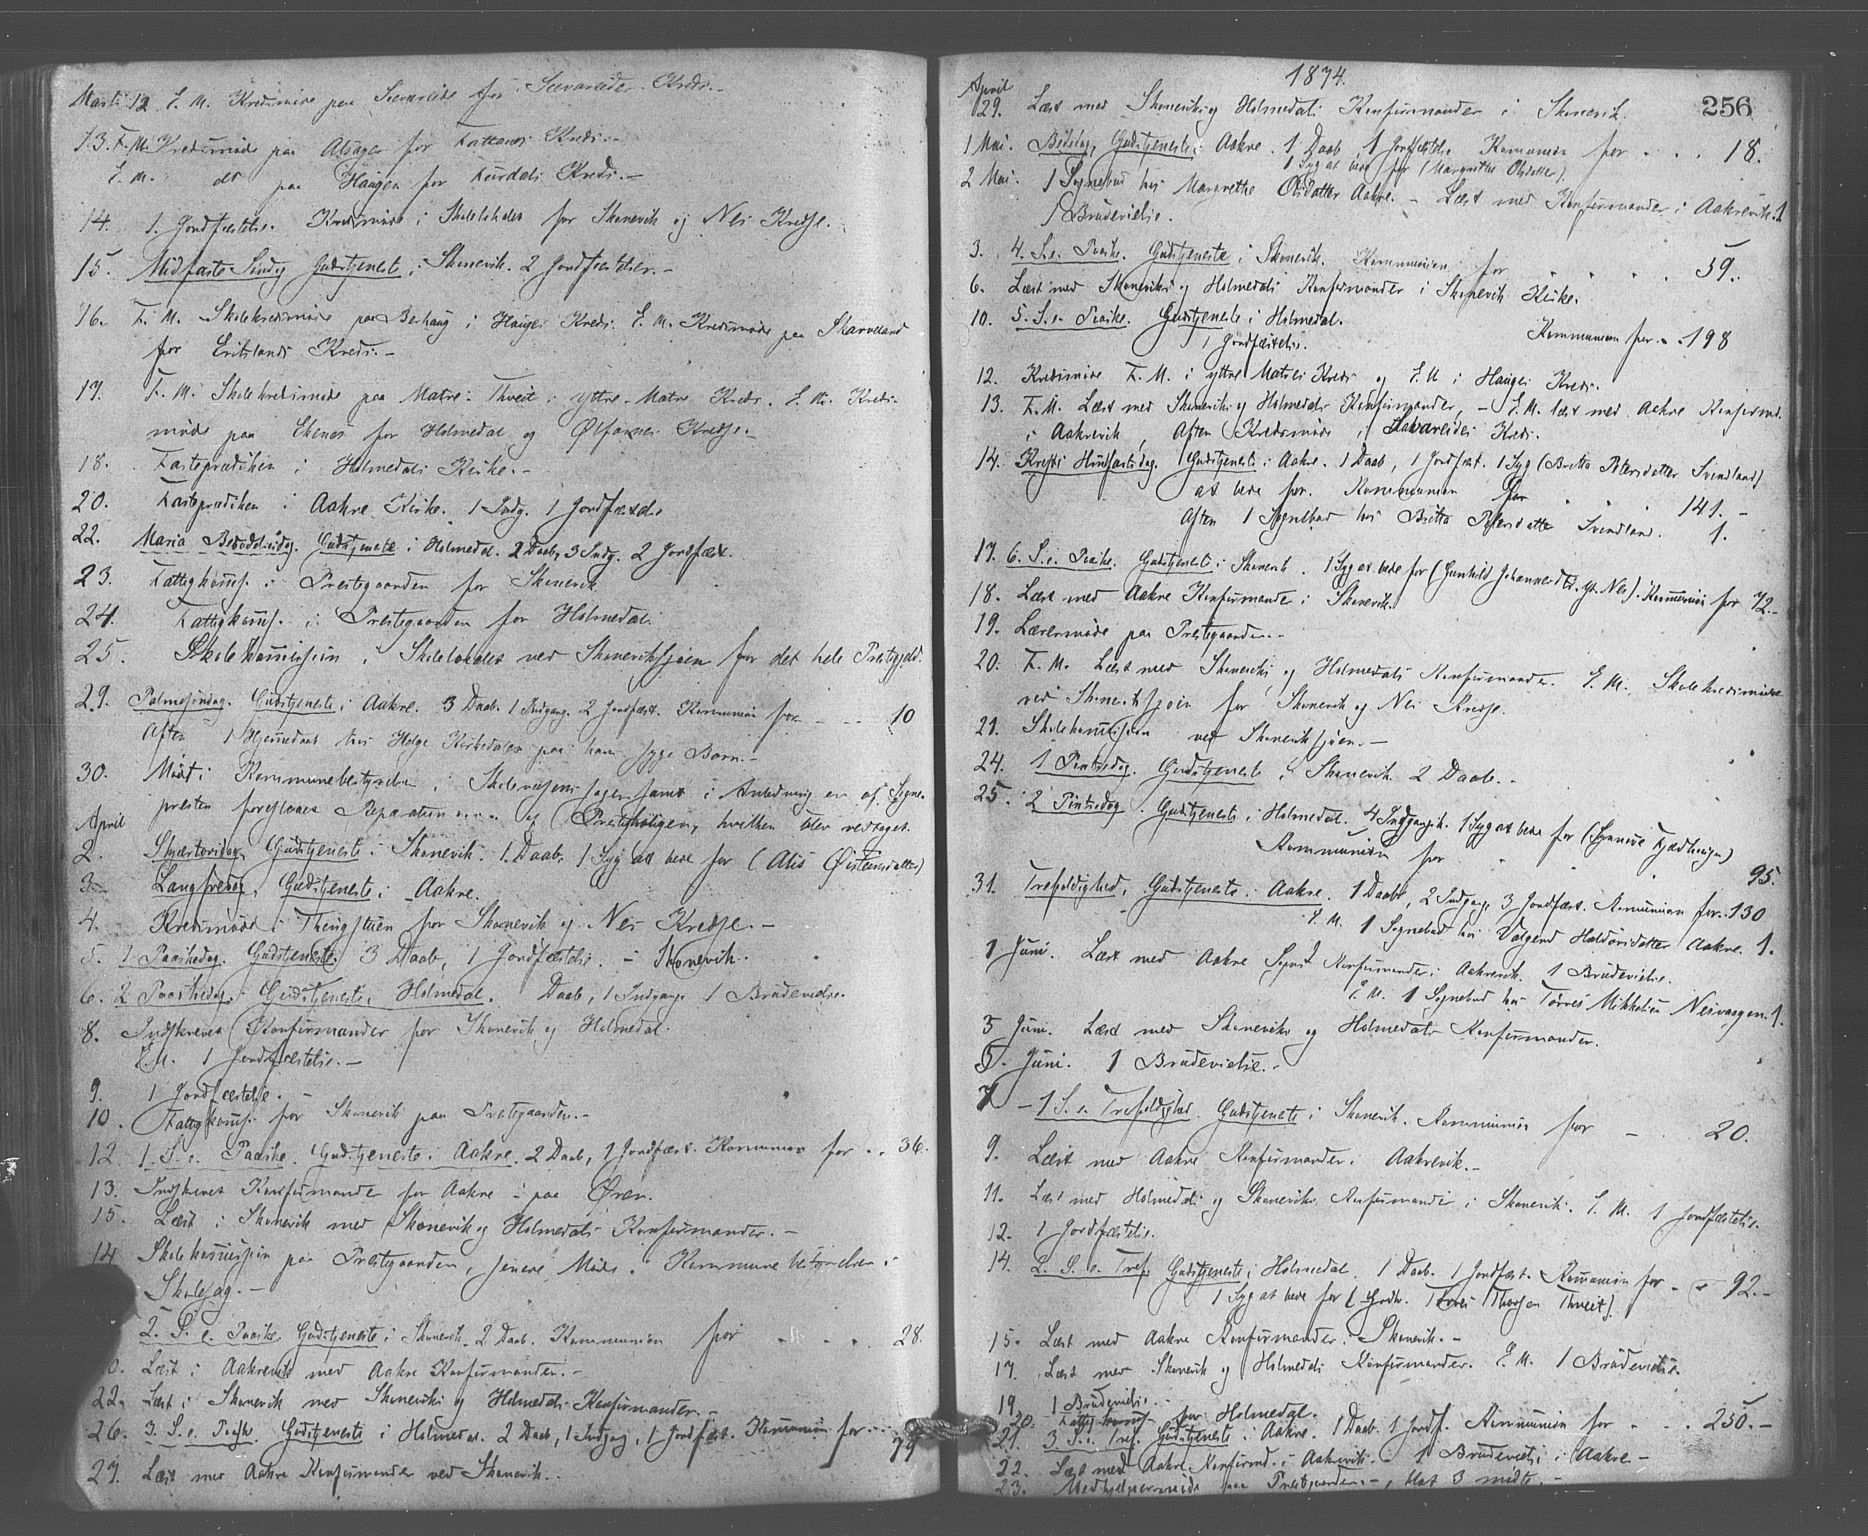 Marts 12. E. M. Kredsmøde paa Sævareide for Sævareide Kreds.-
13. F. M. Kredsmøde paa Alsager for Kreds.-
E. M. do paa Haugen for Kreds.-
14. 1 Jordfæstelse. Kredsmøde i Skolelokalet for Skonevik og Nes Kredse.
15. Midfaste Sndg Gudstjeneste i Skonevik. 2 Jordfæstelser.-
16. F. M. Skolekredsmøde paa i Hauges Kreds. E. M. Kredsmøde paa Skarveland
for Kreds.-
17. F. M. Skolekredsmøde paa Matre-Thveit i yttre Matre Kreds. E. M. Kreds-
møde paa Ekenes for Holmedal og Ølfarnes Kredse.-
18. Fasteprædiken i Holmedals Kirke.-
20. Fasteprædiken i Aakre Kirke. 1 Indg. 1 Jordfæstelse
22. Maria Bebudelsesdag. Gudstjeneste i Holmedal. 2 Daab, 3 Indg. 2 Jordfæst.
23. Fattigkomms. i Prestegaarden for Skonevik
24. Fattigkomms. i Prestegaarden for Holmedal.
25. Skolekommission i Skolelokalet ved Skoneviksjøen for det hele Prestegjeld.
29. Palmesøndag. Gudstjeneste i Aakre. 3 Daab. 1 Indgang. 2 Jordfæst. Kommunion for - - 10
Aften 1 Hjemmedaab hos Helge paa hans syge Barn.-
30. Mødt i Kommunebestyrelsen i Skolevæsens Sager samt i Anledning en af Sogne-
April presten foreslaaet Reparation af Prestegaarden, hvilken blev vedtaget.
2. Skjærtorsdag Gudstjeneste i Skonevik. 1 Daab. 1 Syg at bede for (Alis Østensdatter)
3. Langfredag. Gudstjeneste i Aakre.
4. Kredsmøde i Thingstuen for Skonevik og Nes Kredse.-
5. 1 Paaskedag. Gudstjeneste. 3 Daab, 1 Jordfæstelse. - Skonevik.
6. 2 Paaskedag. Gudstjeneste i Holmedal. Daab, 1 Indgang. 1 Brudevielse.
8. Indskreven Konfirmander for Skonevik og Holmedal.
E. M. 1 Jordfæstelse.-
9. 1 Jordfæstelse.-
10. Fattigkomms. for Skonevik paa Prestegaarden.-
12. 1. S. e. Paaske. Gudstjeneste i Aakre. 2 Daab, 1 Jordfæst. Kommunion for .. 36.
13. Indskreven Konfirmander for Aakre - paa Øren.
15. Læst i Skonevik med Skonevik og Holmedals Konfirmander.-
Skolekommission paa Prestegaarden, senere Møde i Kommunebestyrelsen i
Skolesag.-
2. S. e. Paaske. Gudstjeneste i Skonevik. 2 Daab. Kommunion for . . . 28.
Læst i Aakrevik med Aakre Konfirmander.-
22. Læst i Skonevik med Skoneviks og Holmedals Konfirmander.-
26. 3. S. e. Paaske. Gudstjeneste i Holmedal. 2 Daab, 1 Indgang, 1 Jordfæst. Kommunion for 79
27. Læst med Aakre Konfirmander ved Skonevik.-
1874.
256
April
29. Læst med Skoneviks og Holmedals Konfirmander i Skonevik.
1 Mai. Bededag. Gudstjeneste i Aakre. 1 Daab, 1 Jordfæstelse Kommunion for . . . 18.
1 Syg at bede for (Margrethe Olsdatter).
2 Mai. 1 Sognebud hos Margrethe Olsdatter Aakre. - Læst med Konfirmander i Aakrevik. 1
1 Brudevielse.
3. 4. S. e. Paaske. Gudstjeneste i Skonevik. Kommunion for . . . . 59.
6. Læst med Skoneviks og Holmedals Konfirmander i Skonevik Kirke.
10. 5. S. e. Paaske. Gudstjeneste i Holmedal.
1 Jordfæstelse. Kommunion for . . 198
12. Kredsmøde F. M. i yttre Matres Kreds og E. M. i Hauges Kreds.
13. F. M. Læst med Skoneviks og Holmedals Konfirmander, - E. M. læst med Aakre Konfirmd.
i Aakrevik, Aften Kredsmøde i Sævareides Kreds.
14. Kristi Himmelfartsdag. Gudstjeneste i Aakre. 1 Daab, 1 Jordfæst. 1 Syg (Britta Petersdatter Svendland)
at bede for. Kommunion for 141.-
Aften 1 Sognebud hos Britta Petersdatter Svendland. 1.
17. 6. S. e. Paaske. Gudstjeneste i Skonevik. 1 Syg at bede for (Gunhild Johannesd. Nes). Kommunion for 72.-
18. Læst med Aakre Konfirmander i Skonevik.
19. Lærermøde paa Prestegaarden.-
20. F. M. Læst med Skoneviks og Holmedals Konfirmander. E. M. Skolekredsmøde
ved Skoneviksjøen for Skonevik og Nes Kredse.
21. Skolekommission ved Skoneviksjøen.-
24. 1 Pintsedag. Gudstjeneste i Skonevik 2 Daab.-
25. 2 Pintsedag. Gudstjeneste i Holmedal. 4 Indgangsk. 1 Syg at bede for
Kommunion for 95.
31. Trefoldighed. Gudstjeneste i Aakre. 1 Daab, 2 Indgang, 3 Jordfæst. Kommunion for. 130
E. M. 1 Sognebud hos Valgerd Haldorsdatter Aakre. 1.
1 Juni. Læst med Aakre Sogns Konfirmander i Aakrevik. 1 Brudevielse.
E. M. 1 Sognebud hos Tørres Mikkelsen Nesvaagen. 1.
3 Juni. Læst med Skoneviks og Holmedals Konfirmander.
5. Juni. 1 Brudevielse.-
7 - 1 S. e. Trefoldighed. Gudstjeneste i Skonevik. Kommunion for - . 20.
9. Læst med Aakre Konfirmander i Aakrevik.-
11. Læst med Holmedals og Skoneviks Konfirmander i Skonevik. E. M. 1 Jordfæstelse.
12. 1 Jordfæstelse.
14. 2. S. e. Tref. Gudstjeneste i Holmedal. 1 Daab. 1 Jordfæst. Kommunion for - 92.-
1 Syg at bede for (Gdbr. Tørres Thorsen Thveit).
15. Læst med Aakre Konfirmander i Skonevik.-
17. Læst med Skonevik og Holmedals Konfirmander. E. M. 1 Brudevielse.
19. 1 Brudevielse.-
20. Fattigkomms. for Holmedal.
21. 3 S. e. Tref. Gudstjeneste i Aakre. 1 Daab. 1 Jordf. Kommunion for . . . 250.-
22. Læst med Aakre Konfirmd. i Aakrevik. - 1 Brudevielse i Aakre.-
23. Medhjelpermøde paa Prestegaarden.-, blot 3 mødte.-